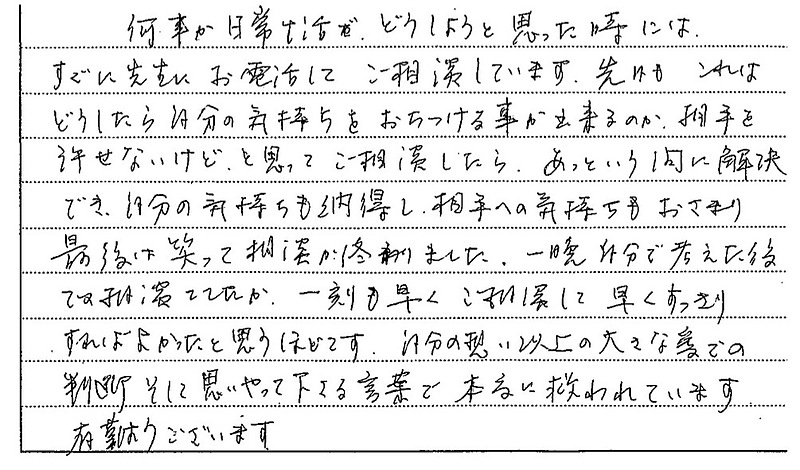 何事か日常生活で、どうしようと思った時には、
すぐに先生に お電話して ご相談しています。先日も これは
どうしたら自分の気持ちを おちつける事が出来るのか、相手を
許せないけど、と思って ご相談したら、あっという間に解決
でき、自分の気持ちも納得し、相手への気持ちも おさまり
最後は笑って相談が終わりました。一晩自分で考えた後
での相談でしたが、一刻も早く ご相談して 早くすっきり
すればよかったと思うほどです。自分の想い以上の大きな愛での
判断 そして思いやって下さる言葉で 本当に救われています
有難うございます